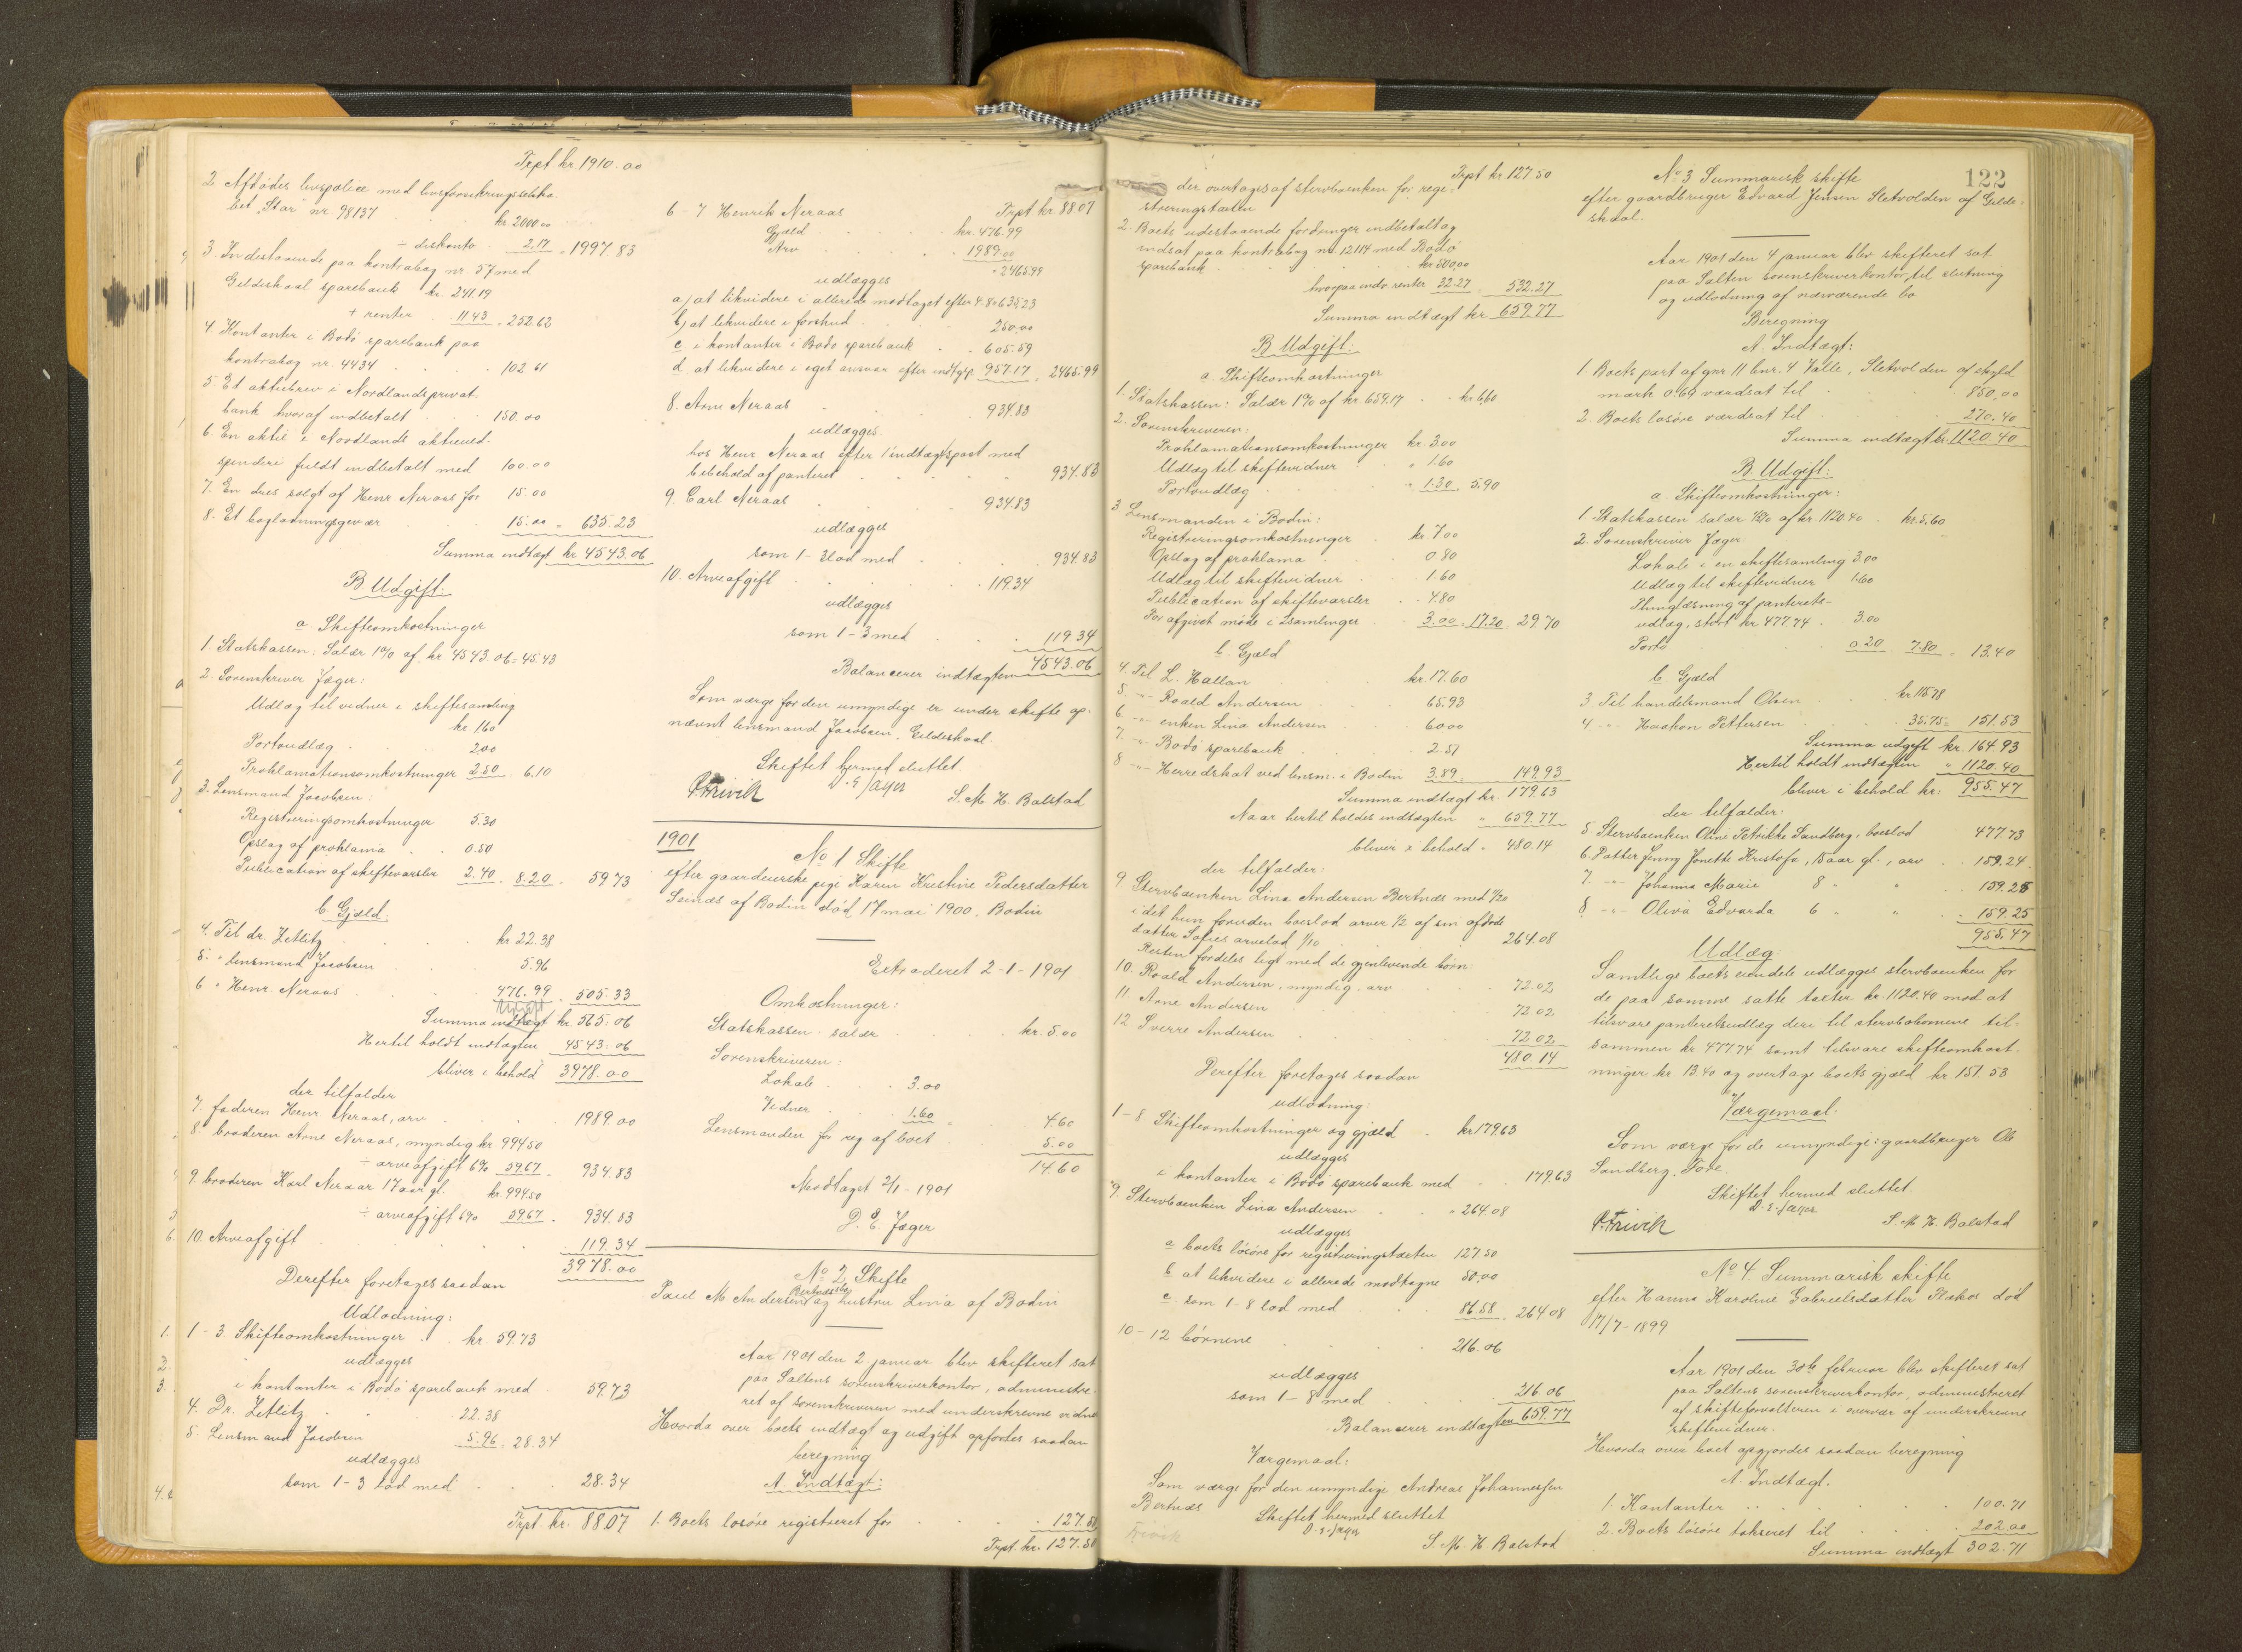 Trpt kr. 1910.00
2. Afdødes livspolice med livsforsikringsselska
bet "Star" nr 98137
kr. 2000.00
÷ diskonto 2,17 " 1997.83
3. Indestaaende paa kontrabog nr. 57 med
Gildeskaal sparebank kr. 241.19
+ renter 11.43 " 252.62
4. Kontanter i Bodø sparebank paa
kontrabog nr. 4434 102.61
5. Et aktiebrev i Nordlands privat-
bank hvoraf indbetalt 150.00
6. En aktie i Nordlands aktieuld-
spinderi fuldt indbetalt med 100.00
7. En dres solgt af Henr. Neraas for 15.00
8. Et bagladningsgevær 15.00 " 635.23
Summa indtægt kr. 4543.06
B Udgift:
a. Skifteomkostninger
1. Statskassen: Salær 1% af kr. 4543.06 = 45.43
2. Sorenskriver Jæger:
Udlæg til vidner i skiftesamling
kr. 1.60
Portoudlæg 2.00
Proklamationsomkostninger 2.50 6.10
3. Lensmand Jacobsen:
Registreringsomkostninger 5.30
Opslag af proklama 0.50
Publication af skiftevarsler 2.40 . 8.20 " 59.73
b. Gjæld:
4. Til dr. Zetlitz kr. 22.38
5. " lensmand Jacobsen 5.96
6 " Henr. Neraas 476.99 " 505.33
udgift
Summa indtægt kr. 565.06
Hertil holdt indtægten 4543.06
bliver i behold 3978.00
der tilfalder
7. faderen Henr. Neraas, arv 1989.00
8. broderen Arne Neraas, myndig kr. 994.50
÷ arveafgift 6% 59.67 934.83
9. broderen Karl Neraas 17 aar gl. kr. 994.50
÷ arveafgift 6% 59.67 . 934.83
10. Arveafgift 119.34
3978.00
Derefter foretages saadan
Udlodning:
1-3. Skifteomkostninger kr. 59.73
udlægges
i kontanter i Bodø sparebank med 59.73
4. Dr. Zetlitz 22.38
5. Lensmand Jacobsen 5.96 " 28.34
udlægges
som 1-3 lod med 28.34
Trpt. kr. 88.07
Trpt kr. 88.07
6-7 Henrik Neraas
Gjæld kr. 476.99
Arv 1989.00
" 2465.99
udlægges
a) at likvidere i allerede modtaget efter 4-8 " 635.23
b) at likvidere i forskud 250.00
c i kontanter i Bodø sparebank 605.59
d. at likvidere i eget ansvar efter indtgtp. 957.17 " 2465.99
8. Arne Neraas 934.83
udlægges.
hos Henr. Neraas efter 1 indtægtspost med
bibehold af panteret 934.83
9. Carl Neraas 934.83
udlægges
som 1-3 lod med 934.83
10. Arveafgift 119.34
udlægges
som 1-3 med 119.34
Balancerer indtægten 4543.06
Som værge for den umyndige er under skifte op-
nævnt lensmand Jacobsen, Gildeskaal.
Skiftet hermed sluttet.
D. E. Jæger
P. Frivik S. M. H. Balstad
1901
No 1 Skifte
efter gaardmerske pige Karen Kristine Pedersdatter
Seines af Bodin død 17 mai 1900. Bodin
Extraderet 2-1-1901
Omkostninger:
Statskassen salær kr. 5.00
Sorenskriveren:
Lokale 3.00
Vidner 1.60 " 4.60
Lensmanden for reg af boet 5.00
14.60
Modtaget 2/1-1901
D. E. Jæger
No 2 Skifte
Bertnes
Paul M. Andersen og hustru Lina af Bodin
Aar 1901 den 2 januar blev skifteret sat
paa Saltens sorenskriverkontor, administre-
ret af sorenskriveren med underskrevne vidner
Hvorda over boets indtægt og udgift opførtes saadan
beregning
A. Indtægt:
1. Boets løsøre registreret for 127.50
Trpt. kr. 127.50
Trpt kr. 127.50
der overtages af stervboenken for regi-
streringstaxten
2. Boets udestaaende fordringer indbetalt og
indsat paa kontrabog nr. 12114 med Bodø
sparebank kr. 500,00
hvorpaa indv. renter 32.27 532.27
Summa indtægt kr. 659.77
B Udgift:
a. Skifteomkostninger
1. Statskassen: Salær 1% af kr. 659.17 kr. 6.60
2. Sorenskriveren:
Proklamationsomkostninger kr. 3.00
Udlæg til skiftevidner " 1.60
Portoudlæg " 1.30 . 5.90
3. Lensmanden i Bodin:
Registreringsomkostninger kr. 7.00
Opslag af proklama 0.80
Udlæg til skiftevidner 1.60
Publication af skiftevarsler 4.80
For afgivet møde i 2 samlinger 3.00 . 17.20 29.70
b. Gjæld
4. Til L. Hallan kr. 17.60
5. -"- Roald Andersen 65.93
6. -"- enken Lina Andersen 60.00
7. -"- Bodø sparebank 2.51
8 -"- Herredskat ved lensm. i Bodin 3.89 149.93
Summa indtægt kr. 179.63
Naar hertil holdes indtægten " 659.77
bliver i behold " 480.14
der tilfalder:
9 Stervboenken Lina Andersen Bertnæs med 11/20
idet hun foruden boeslod arver 1/2 af sin afdøde
datter Sofies arvelod 1/10 264.08
Resten fordeles ligt med de gjenlevende børn:
10. Roald Andersen, myndig, arv 72.02
11. Arne Andersen 72.02
12 Sverre Andersen 72.02
480.14
Derefter foretages saadan
udlodning:
1-8 Skifteomkostninger og gjæld kr. 179.63
udlægges
i kontanter i Bodø sparebank med 179.63
9. Stervboenken Lina Andersen " 264.08
udlægges
a boets løsøre for registreringstaxten 127.50
b at likvidere i allerede modtagne 50.00
c som 1-8 lod med 86.58 . 264.08
10-12 børnene 216.06
udlægges
som 1-8 med 216.06
Balancerer indtægten 659.77
Værgemaal:
Som værge for den umyndige Andreas Johannessen
Bertnæs
Skiftet hermed sluttet
D. E. Jæger
Frivik S. M. H. Balstad
122
No 3 Summarisk skifte
efter gaardbruger Edvard Jensen Sletvolden af Gilde-
skaal.
Aar 1901 den 4 januar blev skifteret sat
paa Salten sorenskriverkontor, til slutning
og udlodning af nærværende bo
Beregning
A. Indtægt:
1. Boets part af gnr. 11 bnr. 4 Valle, Sletvolden af skyld
mark 0.69 værdsat til 850,00
2. Boets løsøre værdsat til 270.40
Summa indtægt kr. 1120.40
B. Udgift:
a. Skifteomkostninger:
1. Statskassen salær 1/2% af kr. 1120.40 kr. 5.60
2. Sorenskriver Jæger
Lokale i en skiftesamling 3.00
Udlæg til skiftevidner 1.60
Thinglæsning af panterets-
udlæg, stort kr. 477.74 3.00
Porto 0.20 7.80 " 13.40
b. Gjæld
3 Til handelsmand Olsen kr. 115.78
4 -"- Haakon Pettersen 35.75 = 151.53
Summa udgift kr. 164.93
Hertil holdt indtægten " 1120.40
bliver i behold kr. 955.47
der tilfalder:
5. Stervboenken Oline Petrikke Sandberg, boeslod 477.73
6. Datter Jenny Jonette Kristofa, 15 aar gl., arv 159.24
7. -"- Johanna Marie 8 " " 159.25
8 -"- Oliva Edvarda 6 " " 159.25
955.47
Udlæg:
Samtlige boets eiendele udlægges stervboenken for
de paa samme satte taxter kr. 1120.40 mod at
tilsvare panteretsudlæg deri til stervbobørnene til-
sammen kr. 477.74 samt tilsvare skifteomkost-
ninger kr. 13.40 og overtage boets gjæld kr. 151.53
Værgemaal:
Som værge for de umyndige: gaardbruger Ole
Sandberg, Fore.
Skiftet hermed sluttet.
D. E. Jæger
P. Frivik S. M. H. Balstad
No 4. Summarisk skifte
efter Hanna Karoline Gabrielsdatter død
17/7-1899
Aar 1901 den februar blev skifteret sat
paa Saltens sorenskriverkontor, administreret
af skifteforvalteren i overvær af underskrevne
skiftevidner.
Hvorda over boet opgjordes saadan beregning
A. Indtægt.
1. Kontanter 100.71
2. Boets løsøre takseret til 202.00
Summa indtægt 302.71